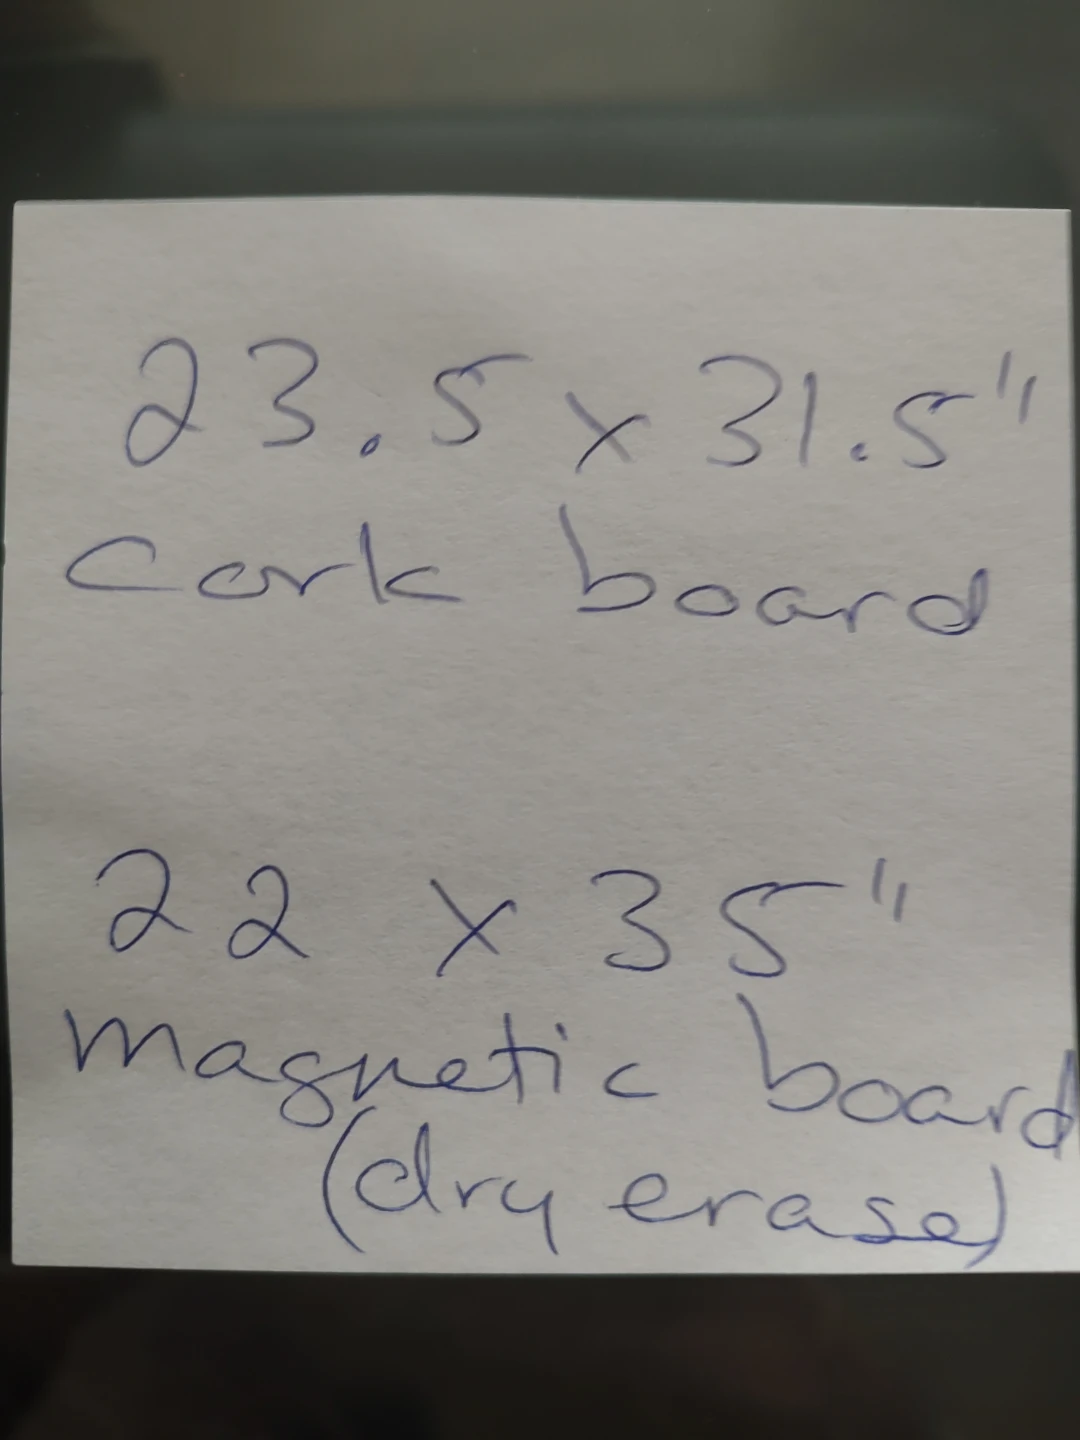 23.5 x 31.5"
Cork board
22 x 35"
magnetic board
(dry erase)